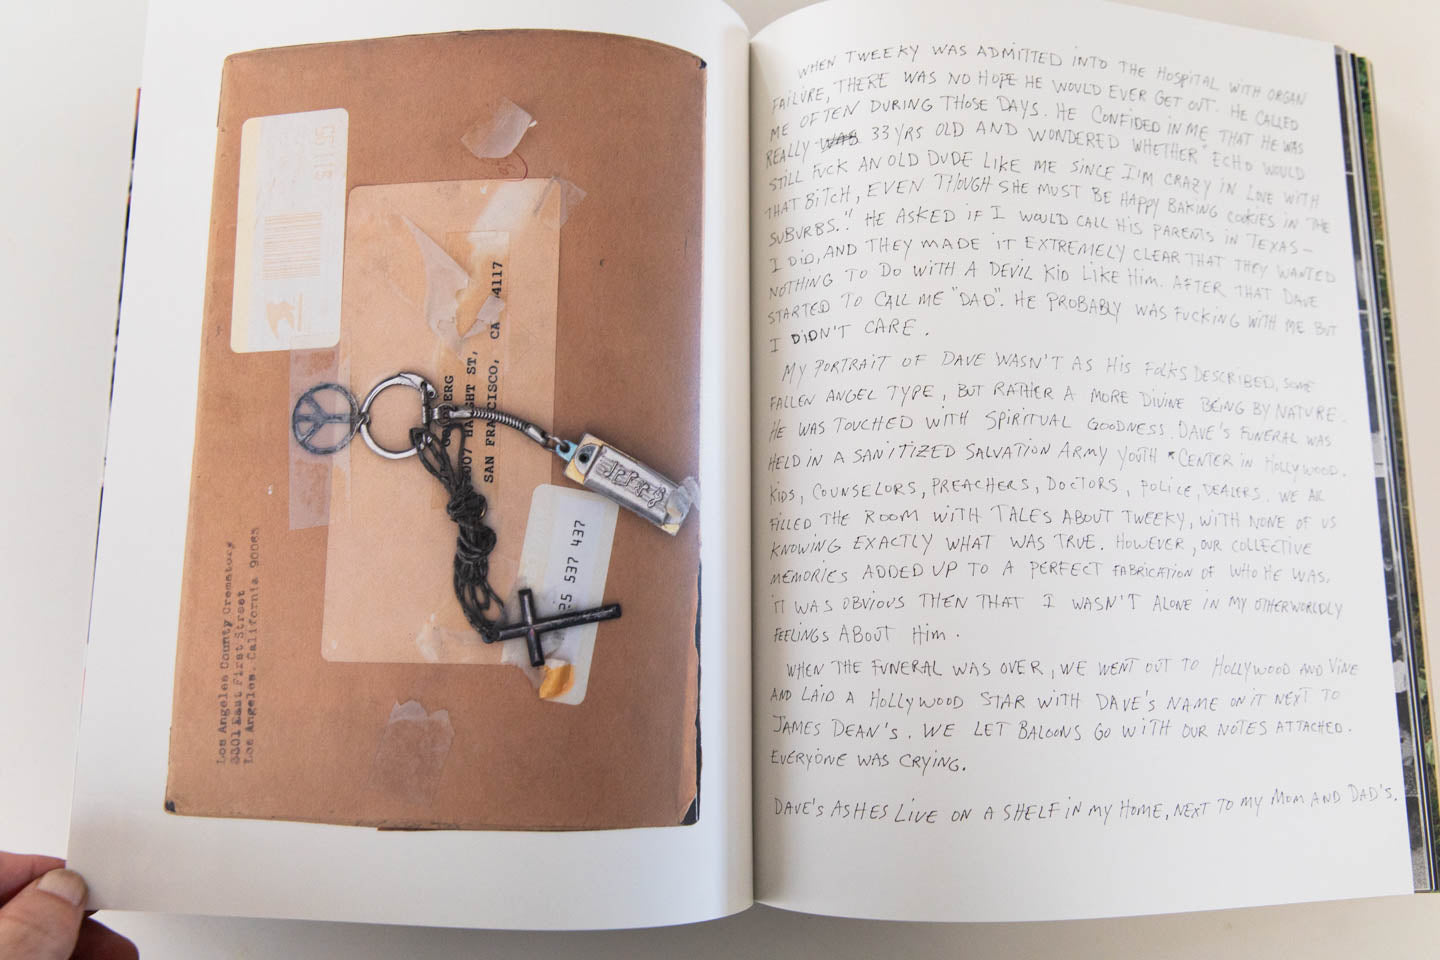 $1.95
4117
CA
ERG
007 HAIGHT ST,
SAN FRANCISCO,
537 437
Los Angeles County Crematory
3301 East First Street
Los Angeles, California 90063
WHEN TWEEKY WAS ADMITTED INTO THE HOSPITAL WITH ORGAN
FAILURE, THERE WAS NO HOPE HE WOULD EVER GET OUT. HE CALLED
ME OFTEN DURING THOSE DAYS. HE CONFIDED IN ME THAT HE WAS
REALLY 33 YRS OLD AND WONDERED WHETHER "ECHO WOULD
STILL FUCK AN OLD DUDE LIKE ME SINCE I'M CRAZY IN LOVE WITH
THAT BITCH, EVEN THOUGH SHE MUST BE HAPPY BAKING COOKIES IN THE
SUBURBS." HE ASKED IF I WOULD CALL HIS PARENTS IN TEXAS –
I DID, AND THEY MADE IT EXTREMELY CLEAR THAT THEY WANTED
NOTHING TO DO WITH A DEVIL KID LIKE HIM. AFTER THAT DAVE
STARTED TO CALL ME "DAD". HE PROBABLY WAS FUCKING WITH ME BUT
I DIDN'T CARE.
MY PORTRAIT OF DAVE WASN'T AS HIS FOLKS DESCRIBED, SOME
FALLEN ANGEL TYPE, BUT RATHER A MORE DIVINE BEING BY NATURE.
HE WAS TOUCHED WITH SPIRITUAL GOODNESS. DAVE'S FUNERAL WAS
HELD IN A SANITIZED SALVATION ARMY YOUTH CENTER IN HOLLYWOOD.
KIDS, COUNSELORS, PREACHERS, DOCTORS, POLICE, DEALERS. WE ALL
FILLED THE ROOM WITH TALES ABOUT TWEEKY, WITH NONE OF US
KNOWING EXACTLY WHAT WAS TRUE. HOWEVER, OUR COLLECTIVE
MEMORIES ADDED UP TO A PERFECT FABRICATION OF WHO HE WAS.
IT WAS OBVIOUS THEN THAT I WASN'T ALONE IN MY OTHERWORLDLY
FEELINGS ABOUT HIM.
WHEN THE FUNERAL WAS OVER, WE WENT OUT TO HOLLYWOOD AND VINE
AND LAID A HOLLYWOOD STAR WITH DAVE'S NAME ON IT NEXT TO
JAMES DEAN'S. WE LET BALOONS GO WITH OUR NOTES ATTACHED.
EVERYONE WAS CRYING.
DAVE'S ASHES LIVE ON A SHELF IN MY HOME, NEXT TO MY MOM AND DAD'S.